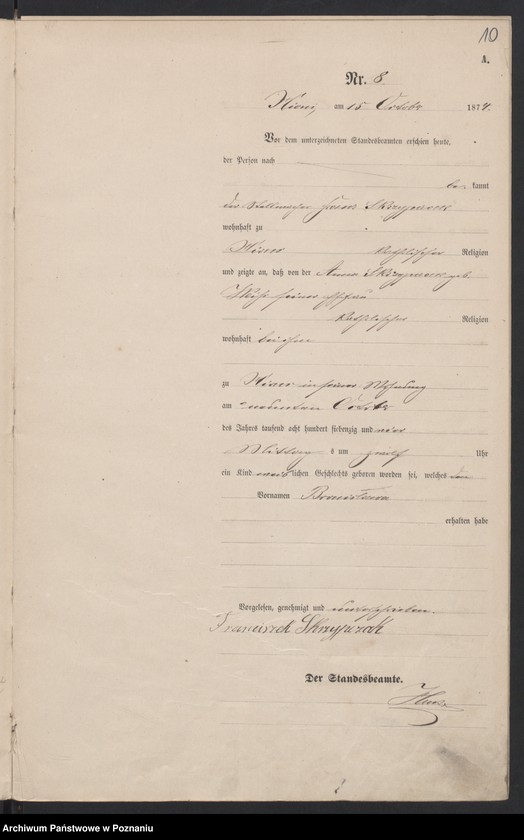 10
A.
Nr. 8
am 15 October 1874.
Vor dem unterzeichneten Standesbeamten erschien heute,
der Person nach
be kannt
der Stellmacher Franz Skrzypczak
wohnhaft zu
katholischer Religion
und zeigte an, daß von der Anna Skrzypczak geb.
seiner Ehefrau
katholischer Religion
wohnhaft bei ihm
zu in seiner Wohnung
am neunten October
des Jahres tausend acht hundert siebenzig und vier
Mittag s um zwölf Uhr
ein Kind weib lichen Geschlechts geboren worden sei, welches den
Vornamen Bronisława
erhalten habe
Vorgelesen, genehmigt und unterschrieben.
Franciszek Skrzypczak
Der Standesbeamte.
Archiwum Państwowe w Poznaniu